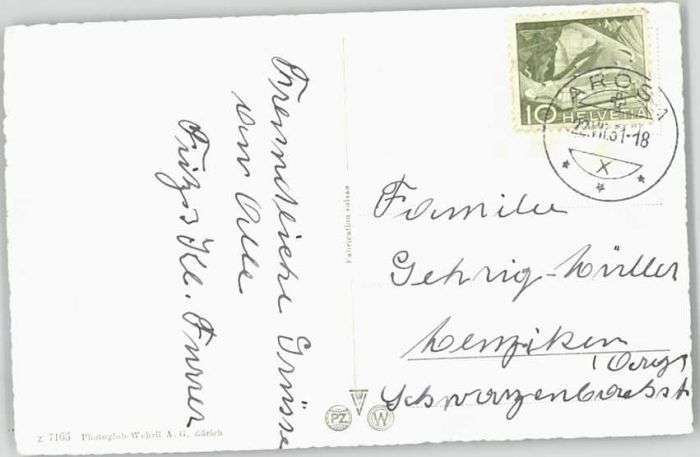 Freundliche Grüsse
an Alle
Frizis Kl. Furrer
Fabrication suisse
z 7165 Photoglob-Wehrli A. G. Zürich
PZ
W
10
HELVETIA
AROSA
22.VII.51-18
X
Familie
Gehrig-Müller
Menziken
(Aarg)
Schwarzenbachst